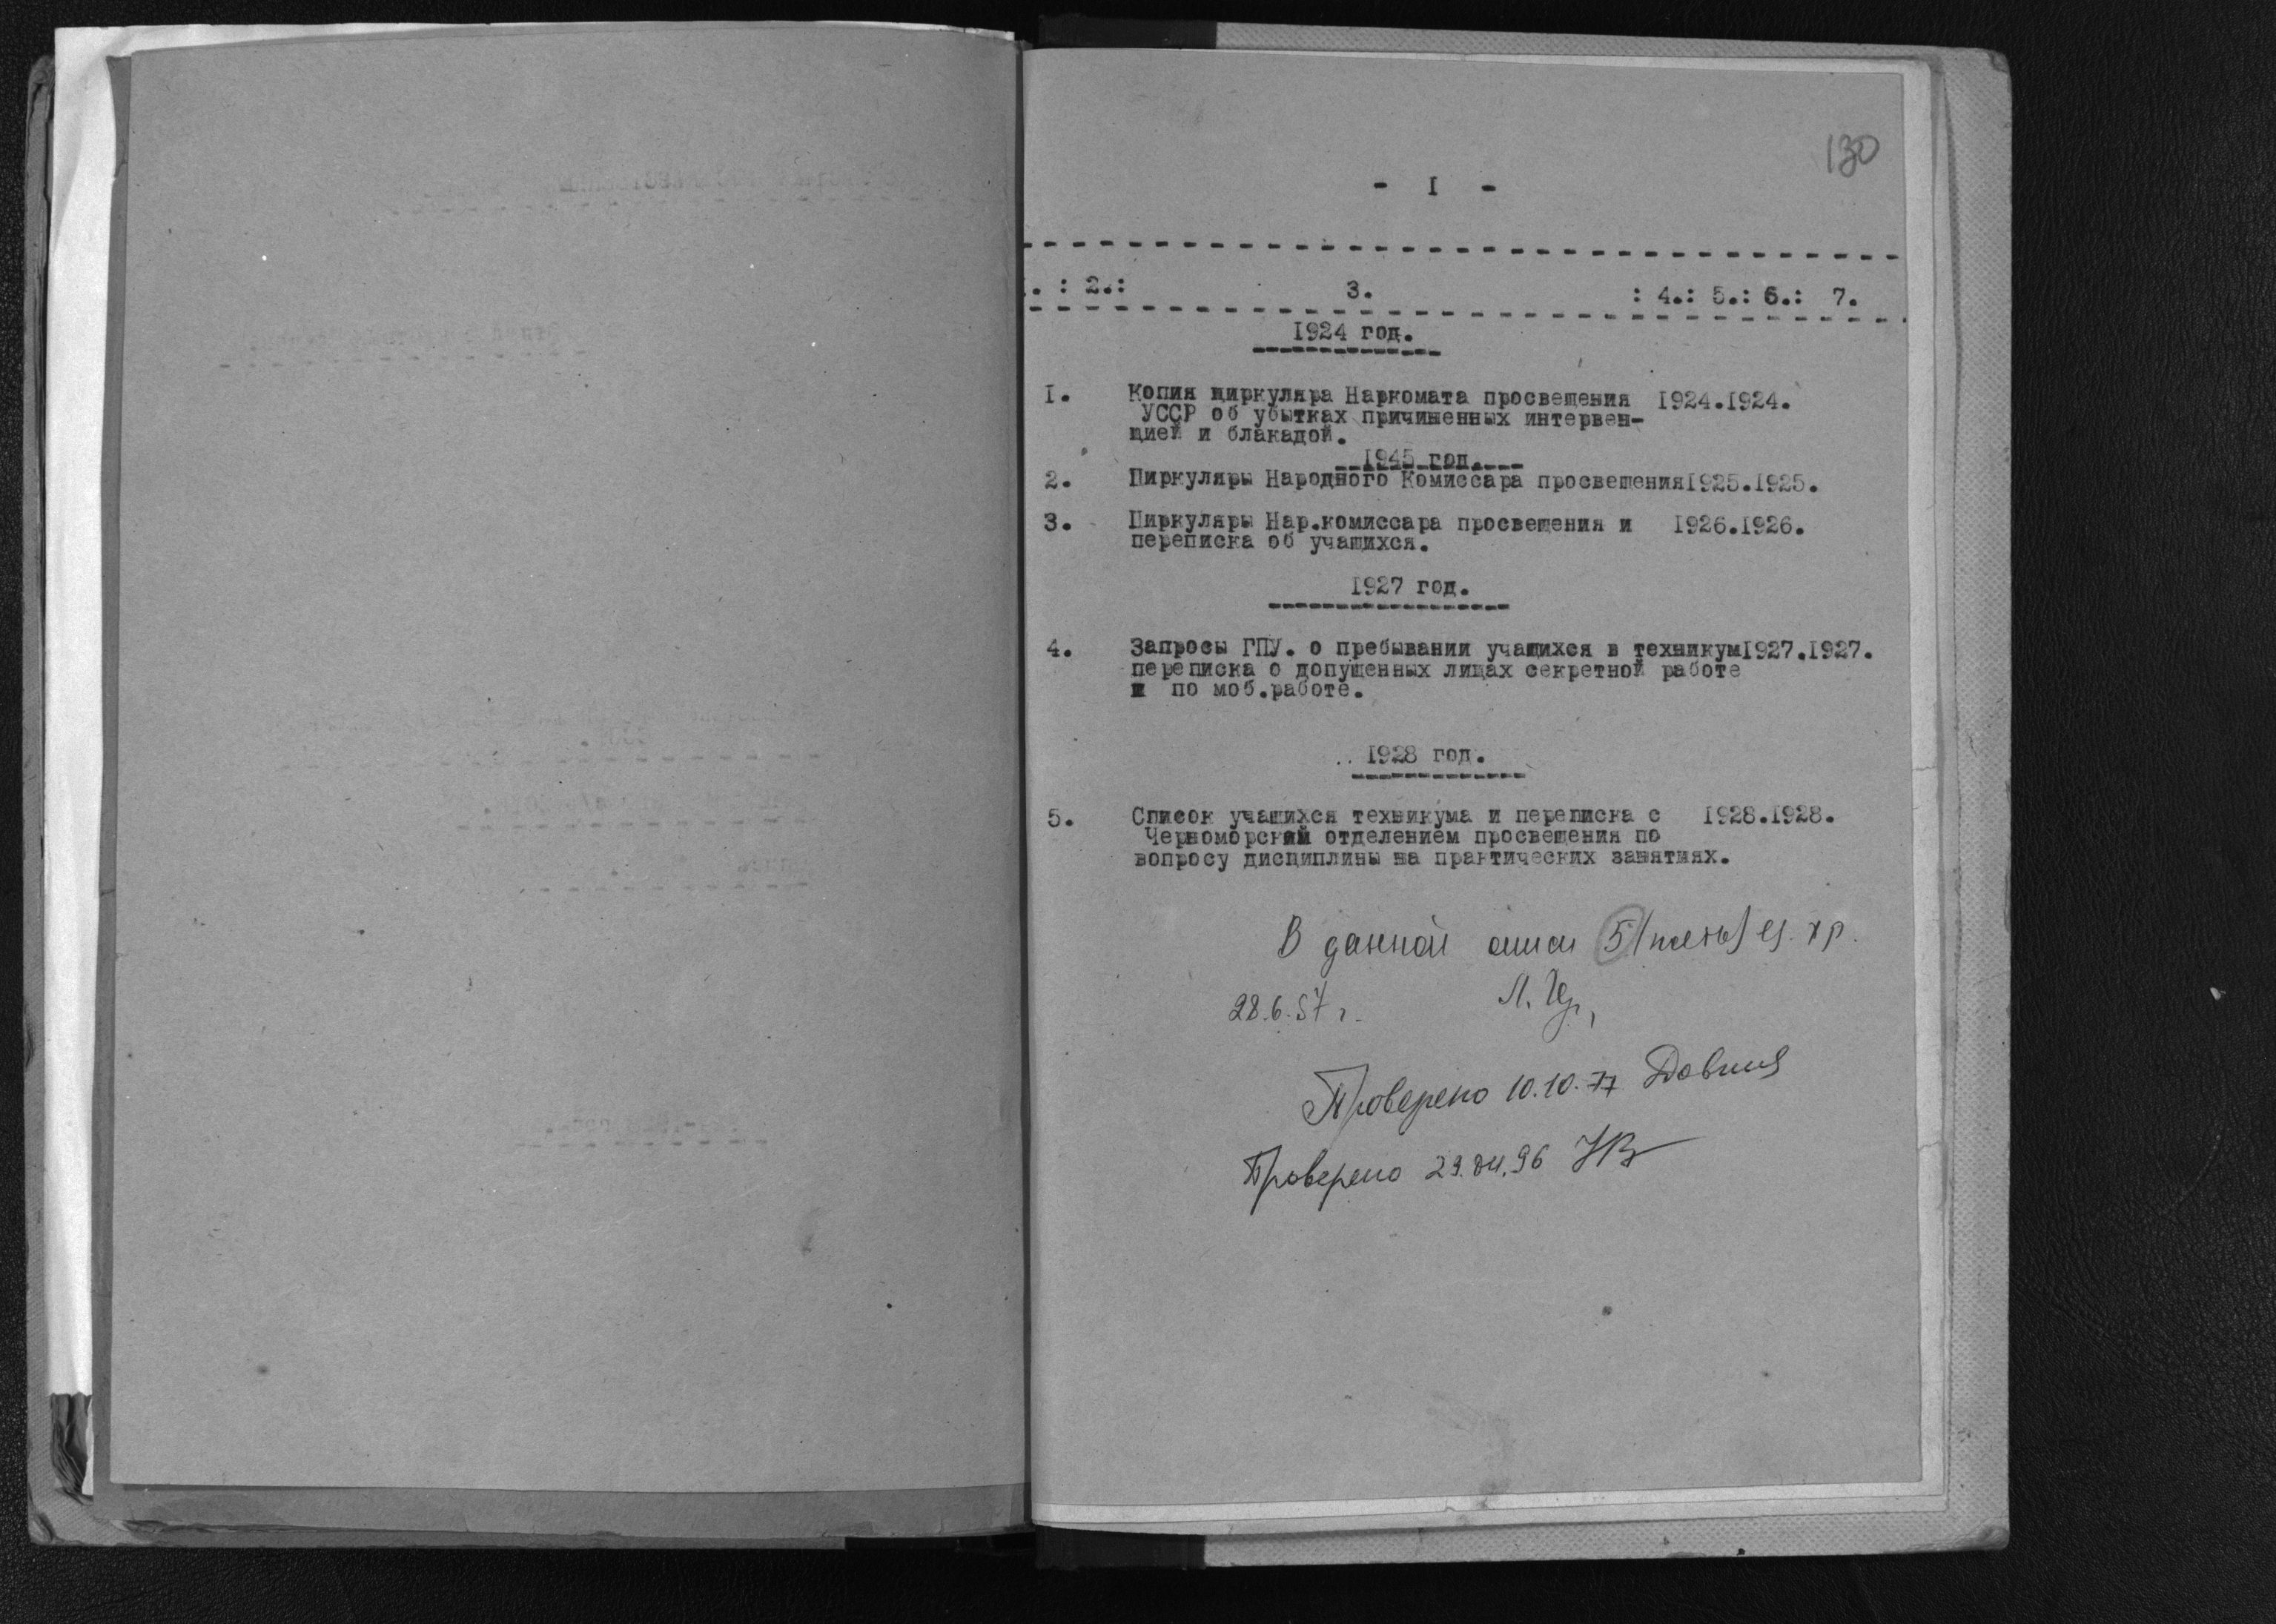 130
- I -
. : 2.: 3. : 4.: 5.: 6.: 7.
1924 год.
I. Копия циркуляра Наркомата просвещения 1924.1924.
УССР об убытках причиненных интервен-
цией и блакадой.
1945 год.
2. Циркуляры Народного Комиссара просвещения 1925.1925.
3. Циркуляры Нар.комиссара просвещения и 1926.1926.
переписка об учащихся.
1927 год.
4. Запросы ГПУ. о пребывании учащихся в техникум 1927.1927.
переписка о допущенных лицах секретной работе
и по моб.работе.
1928 год.
5. Список учащихся техникума и переписка с 1928.1928.
Черноморский отделением просвещения по
вопросу дисциплины на практических занятиях.
В данной описи 5 (пять) ед. хр.
28.6.57 г.
Проверено 10.10.77
Проверено 29.04.96